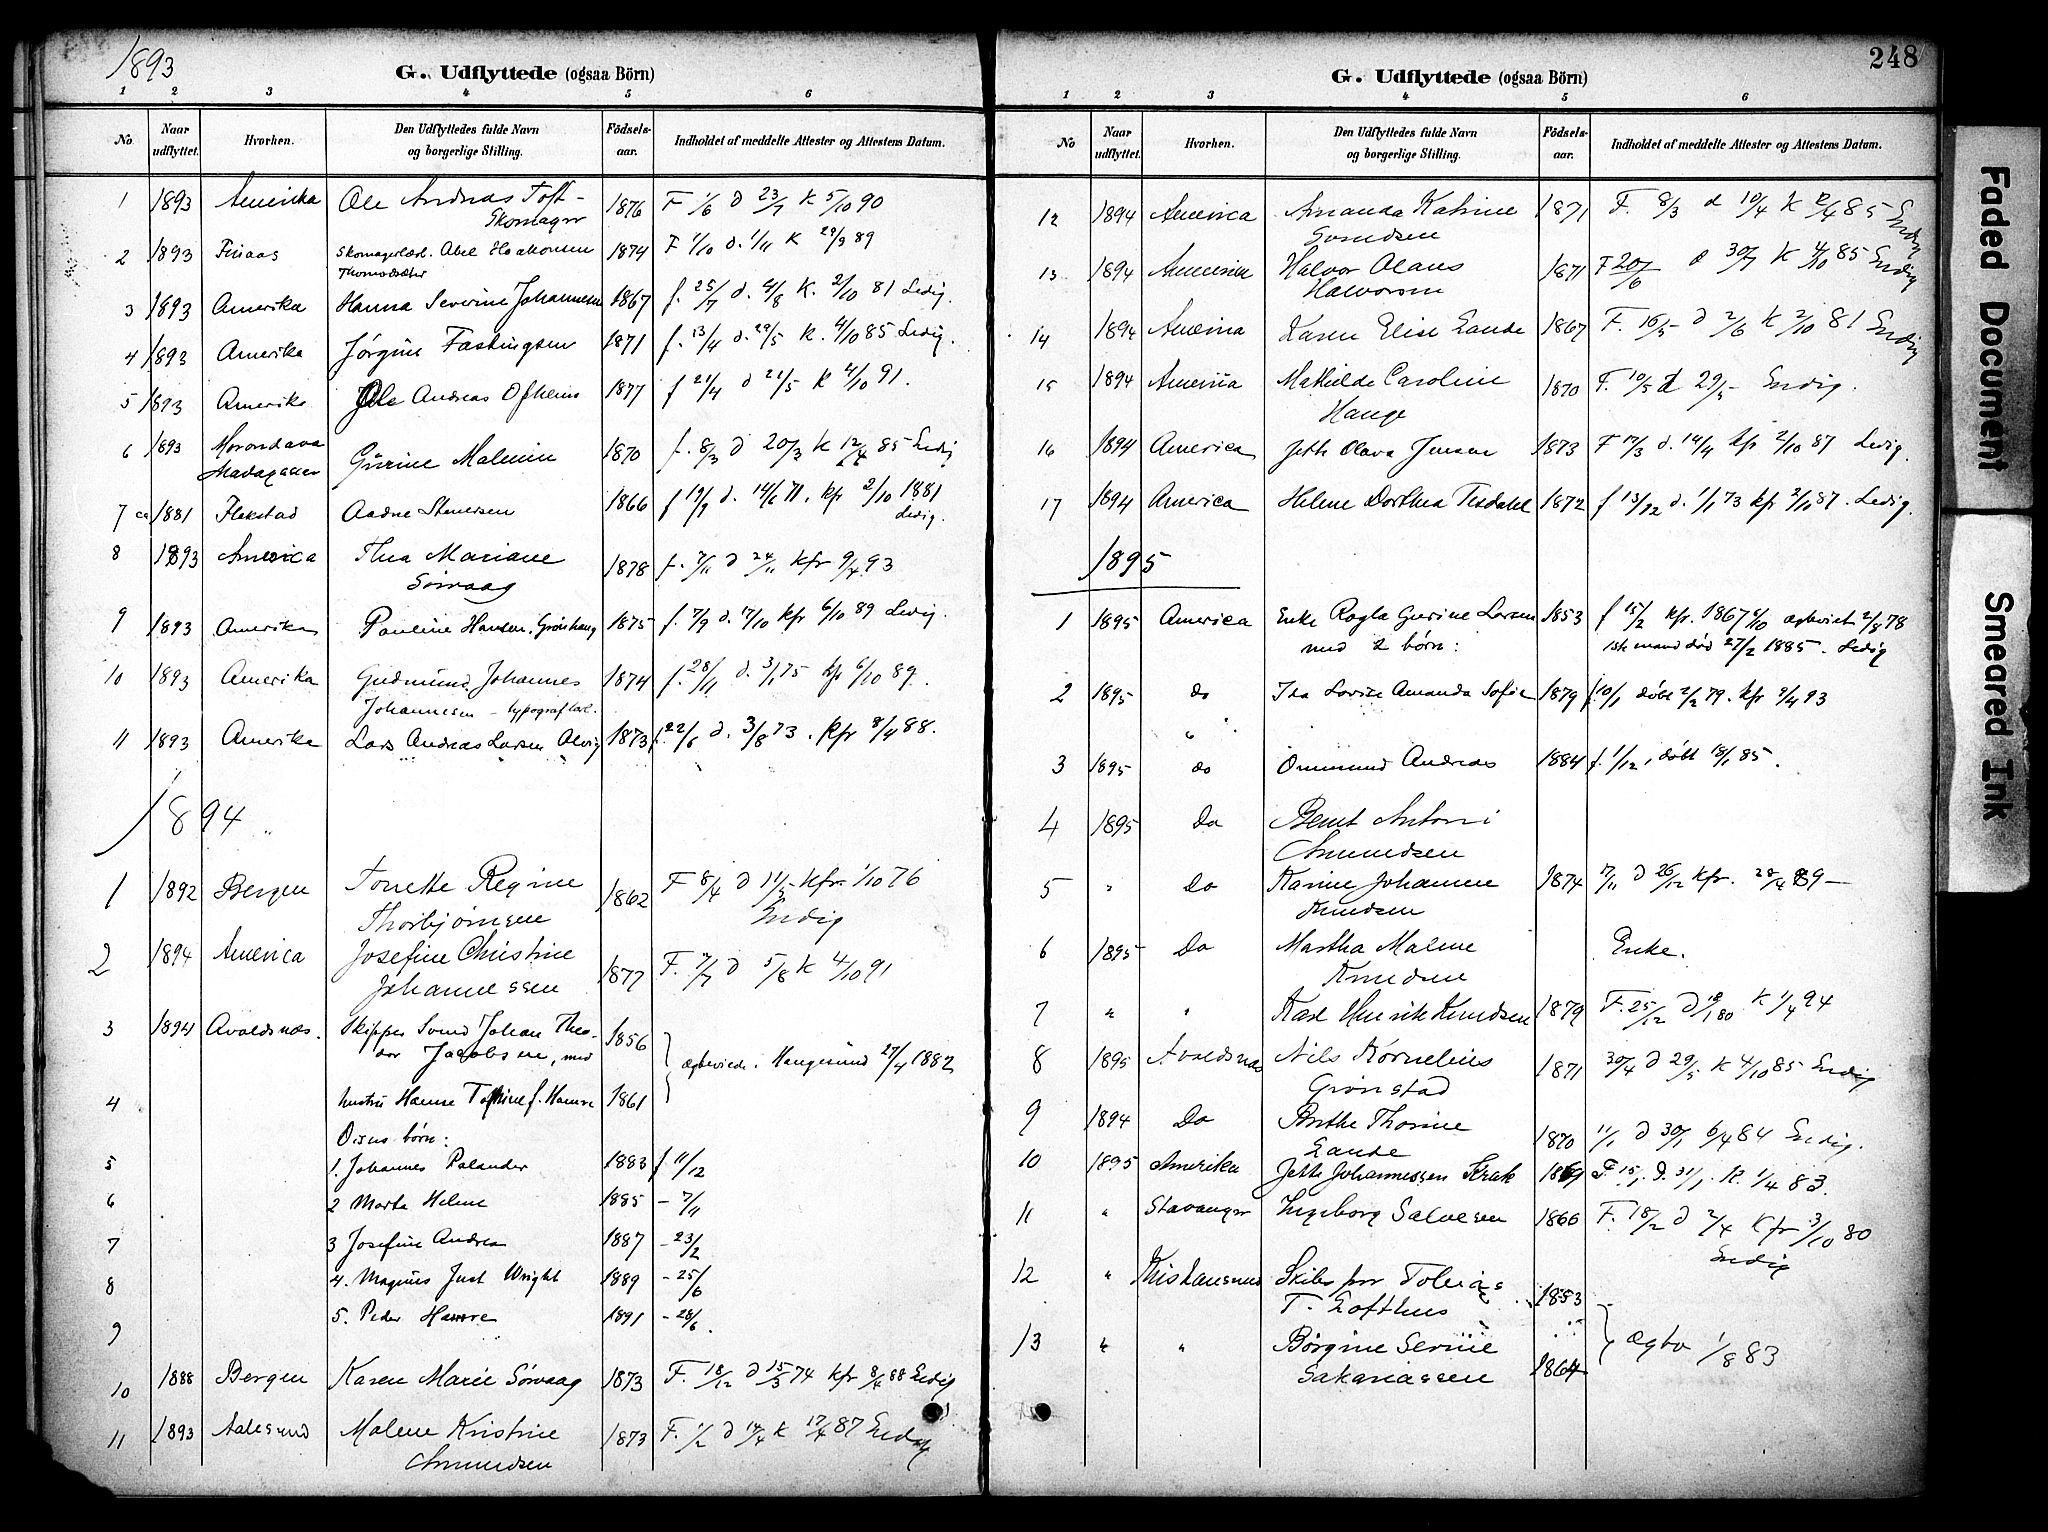 1893
G. Udflyttede (ogsaa Börn)
1 2 3 4 5 6
No. Naar udflyttet. Hvorhen. Den Udflyttedes fulde Navn og borgerlige Stilling. Födsels-aar. Indholdet af meddelte Attester og Attestens Datum.
1 1893 Amerika Ole Andreas Toft - 1876 F 1/6 d 23/7 K 5/10 90
Skomager
2 1893 Skomagerlærl. Abel Haakonsen 1874 F 1/10 d. 1/11 K 29/9 89
3 1893 Amerika Hanna Severine Johannesen 1867 f. 25/7 d. 4/8 K. 2/10 81 Ledig.
4 1893 Amerika Jørgine Fastingsen 1871 f. 13/4 d. 29/5 K. 4/10 85 Ledig.
5 1893 Amerika Ole Andreas Ofheim 1877 f 21/4 d 21/5 K 4/10 91.
6 1893 Morondava Gurine Malenin 1870 f. 8/3 d 20/3 K 12/4 85 Endig
Madagascar
7 ca 1881 Aadne Stenersen 1866 f 19/9 d. 14/6 71. kfr 2/10 1881
Ledig.
8 1893 America Thea Mariane 1878 f. 7/11 d 24/11 kfr 9/4 93
Sørvaag
9 1893 Amerika Pauline Hansen, Grønhaug 1875 f. 7/9 d. 17/10 kfr 6/10 89 Ledig.
10 1893 Amerika Gudmund Johannes 1874 f. 28/11 d. 3/1 75 kfr 6/10 89.
Johannesen - typograflærl.
11 1893 Amerika Lars Andreas Larsen Alvig 1873 f. 22/6 d. 3/8 73. kfr 8/4 88.
1894
1 1892 Bergen Tonette Regine 1862 F 8/4 d 11/5 kfr. 1/10 76
Thorbjørnsen Endig
2 1894 America Josefine Christine 1877 F. 7/7 d 5/8 K 4/10 91
Johannessen
3 1894 Avaldsnæs. Skipper Svend Johan Theo- 1856
dor Jacobsen, med Haugesund 27/4 1882
4 hustru Hanne f. Hamre 1861
Disses børn:
5 1. Johannes Palander 1883 f 11/12
6 2 Marta Helene 1885 - 7/4
7 3 Josefine Andrea 1887 - 23/2
8 4. Magnus Just Wright 1889 - 25/6
9 5. Peder Hamre 1891 - 28/6.
10 1888 Bergen Karen Marie Sørvaag 1873 F. 18/12 d 15/3 74 kfr 8/4 88 Endig
11 1893 Aalesund Malene Kristine 1873 F. 1/2 d 14/4 K 17/4 87 Endig
Amundsen
248
G. Udflyttede (ogsaa Börn)
1 2 3 4 5 6
No Naar udflyttet. Hvorhen. Den Udflyttedes fulde Navn og borgerlige Stilling. Födsels-aar. Indholdet af meddelte Attester og Attestens Datum.
12 1894 America Amanda Katrine 1871 F. 8/3 d 10/4 K 12/4 85 Endig
Svendsen
13 1894 America Halvor Olaus 1871 F 20/6 d 30/7 K 4/10 85 Endig
Halvorsen
14 1894 America Karen Elise Lande 1867 F. 16/5 d 2/6 K 2/10 81 Endig
15 1894 America Mathilde Caroline 1870 F. 10/5 d 29/5 Endig.
Hauge
16 1894 America Jette Olava Jensen 1873 F 17/3 d. 14/4 kfr 2/10 87 Ledig.
17 1894 America Helene Dorthea Tisdahl 1872 f 13/12 d. 1/1 73 kfr 2/10 87. Ledig.
1895
1 1895 America Enke Ragla Gurine Larsen 1853 f 15/2 kfr. 1867 6/10 ægteviet 2/8 78
med 2 børn: mand død 27/2 1885. Ledig
2 1895 do Ida Lovise Amanda Sofie 1879 f. 10/1 døbt 2/2 79. kfr 9/4 93
3 1895 do Ommund Andreas 1884 f. 1/12, døbt 18/1 85.
4 1895 Do Bernt Antoni
Amundsen
5 " Do Karine Johanne 1874 17/11 d 26/12 kfr. 28/4 89 -
Knudsen
6 1895 Do Martha Malene Enke.
Knudsen
7 " " Karl Henrik Knudsen 1879 F. 25/12 d 18/1 80 K 1/4 94
8 1895 Avaldsnæs Nils Kornelius 1871 30/4 d 29/5 K 4/10 85 Endig
Grønstad
9 1894 Do Berthe Thorine 1870 11/1 d 30/1 6/4 84 Endig.
Lande
10 1895 Amerika Jette Johannessen Krak F. 15/1. d. 31/1. K. 1/4 83.
11 " Stavanger Ingeborg Salvesen 1866 F. 18/2 d 2/4 Kfr 3/10 80
Endig
12 " Kristiansund Tobias 1853
T. Lofthus
13 " " Børgine Serine Ægtv 1/8 83
Sakariassen 1864
Faded Document
Smeared Ink